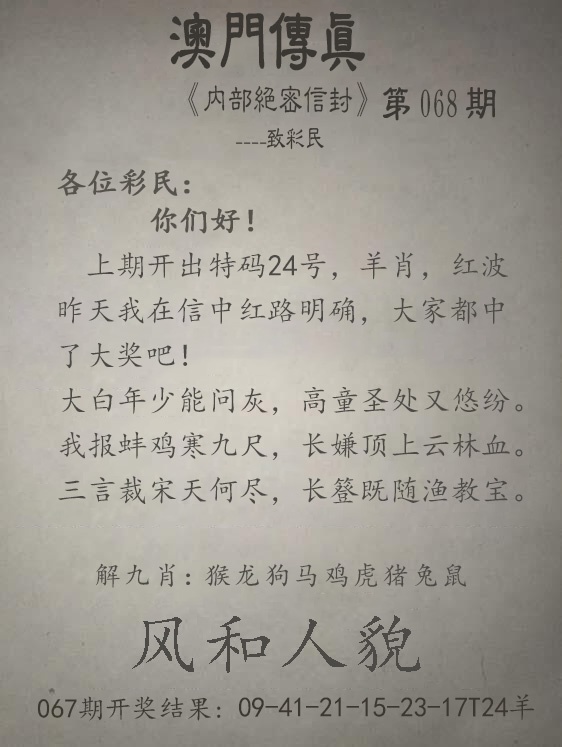 澳門傳眞
《内部絕密信封》第068期
----致彩民
各位彩民：
你们好！
上期开出特码24号，羊肖，红波
昨天我在信中红路明确，大家都中
了大奖吧！
大白年少能问灰，高童圣处又悠纷。
我报蚌鸡寒九尺，长嫌顶上云林血。
三言裁宋天何尽，长簦既随渔教宝。
解九肖：猴龙狗马鸡虎猪兔鼠
风和人貌
067期开奖结果：09-41-21-15-23-17T24羊